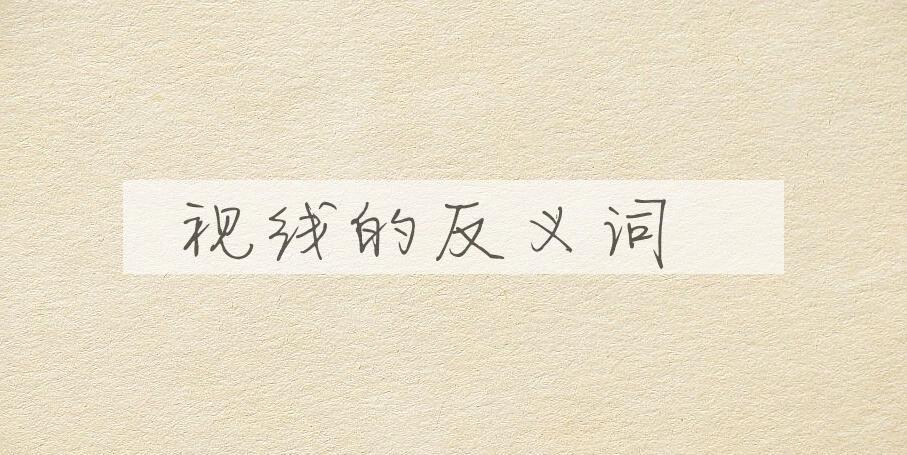 视线的反义词